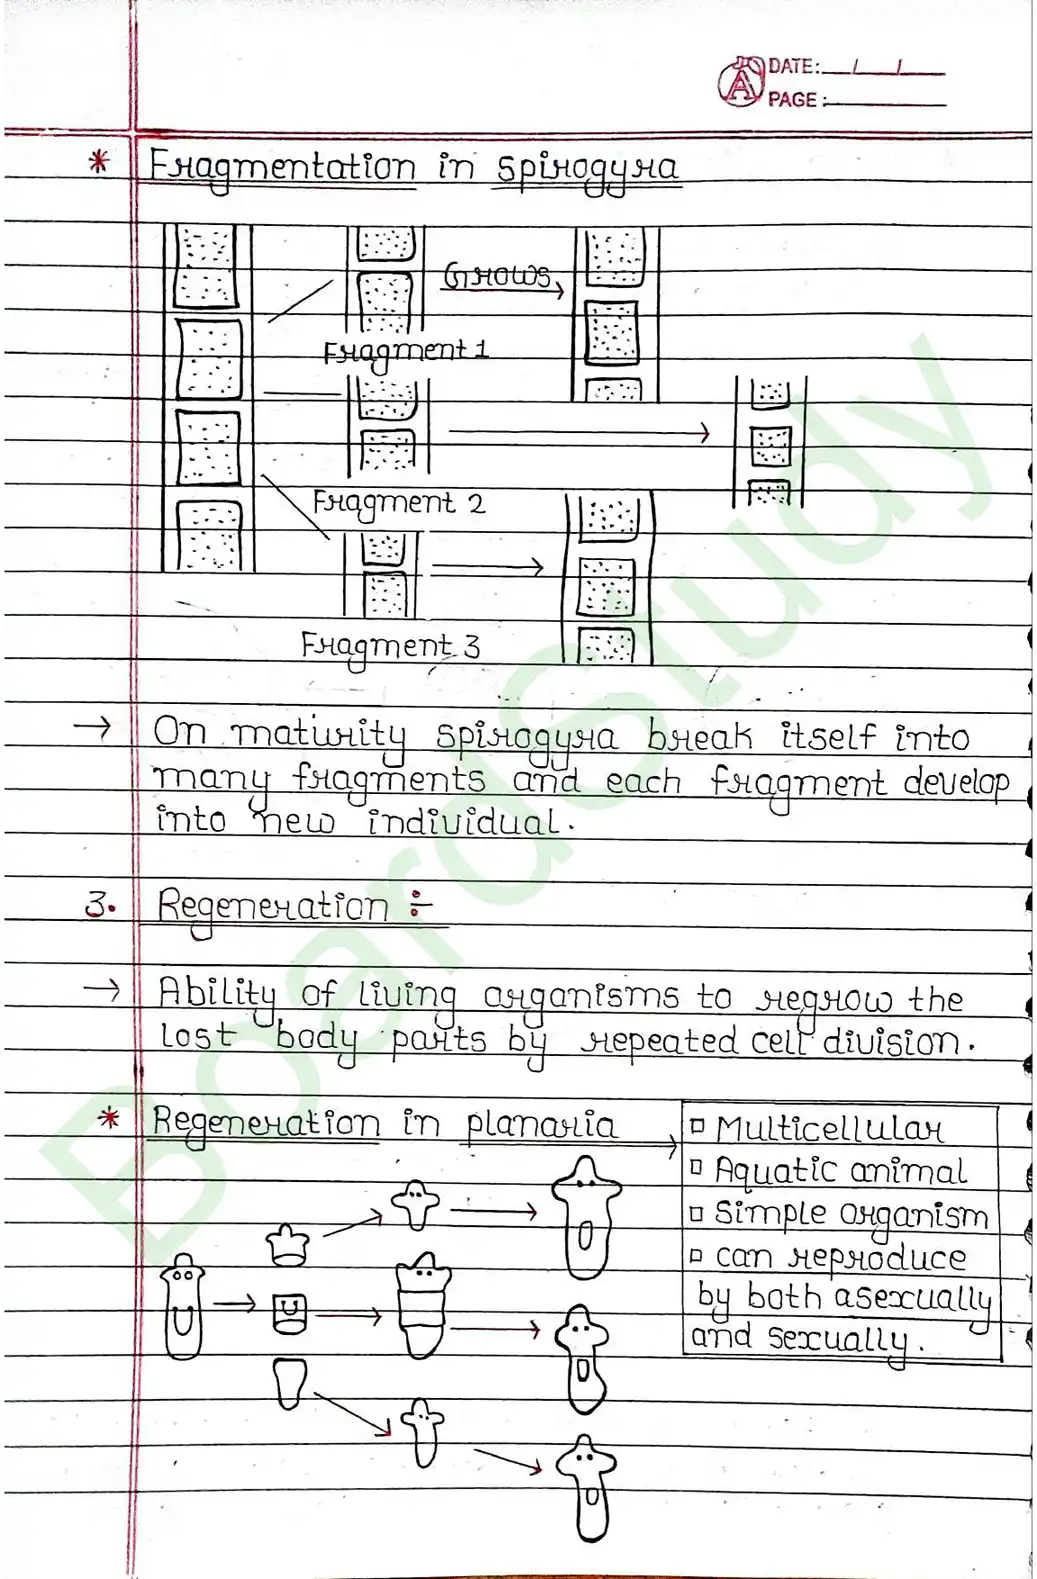 DATE: __/__/__
PAGE:
* Fragmentation in spirogyra
Grows
Fragment 1
Fragment 2
Fragment 3
→ On maturity spirogyra break itself into
many fragments and each fragment develop
into new individual.
3. Regeneration ÷
→ Ability of living organisms to regrow the
lost body parts by repeated cell division.
* Regeneration in planaria →
▫ Multicellular
▫ Aquatic animal
▫ Simple organism
▫ can reproduce
by both asexually
and sexually.
BoardStudy